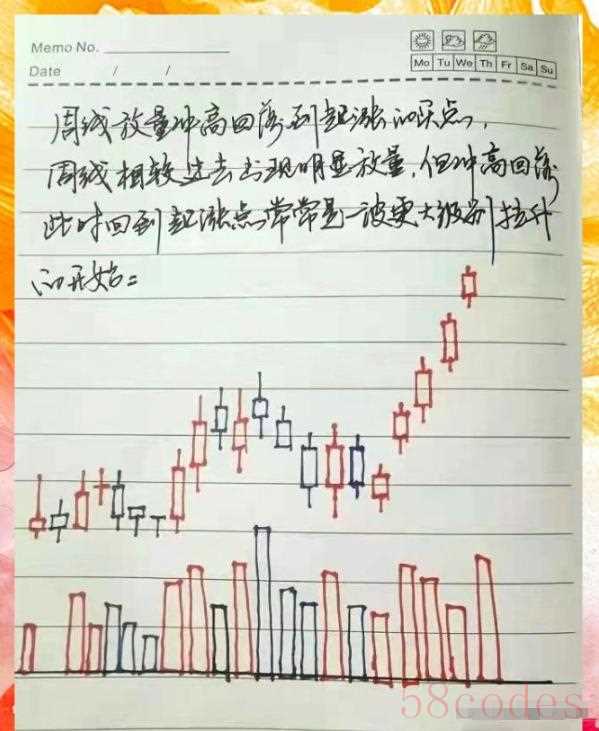 Memo No.
Mo Tu We Th Fr Sa Su
Date / /
周线放量冲高回落到起涨的买点,
周线相较过去出现明显放量,但冲高回落
此时回到起涨点,常常是一波更大级别拉升
的开始=
58codes